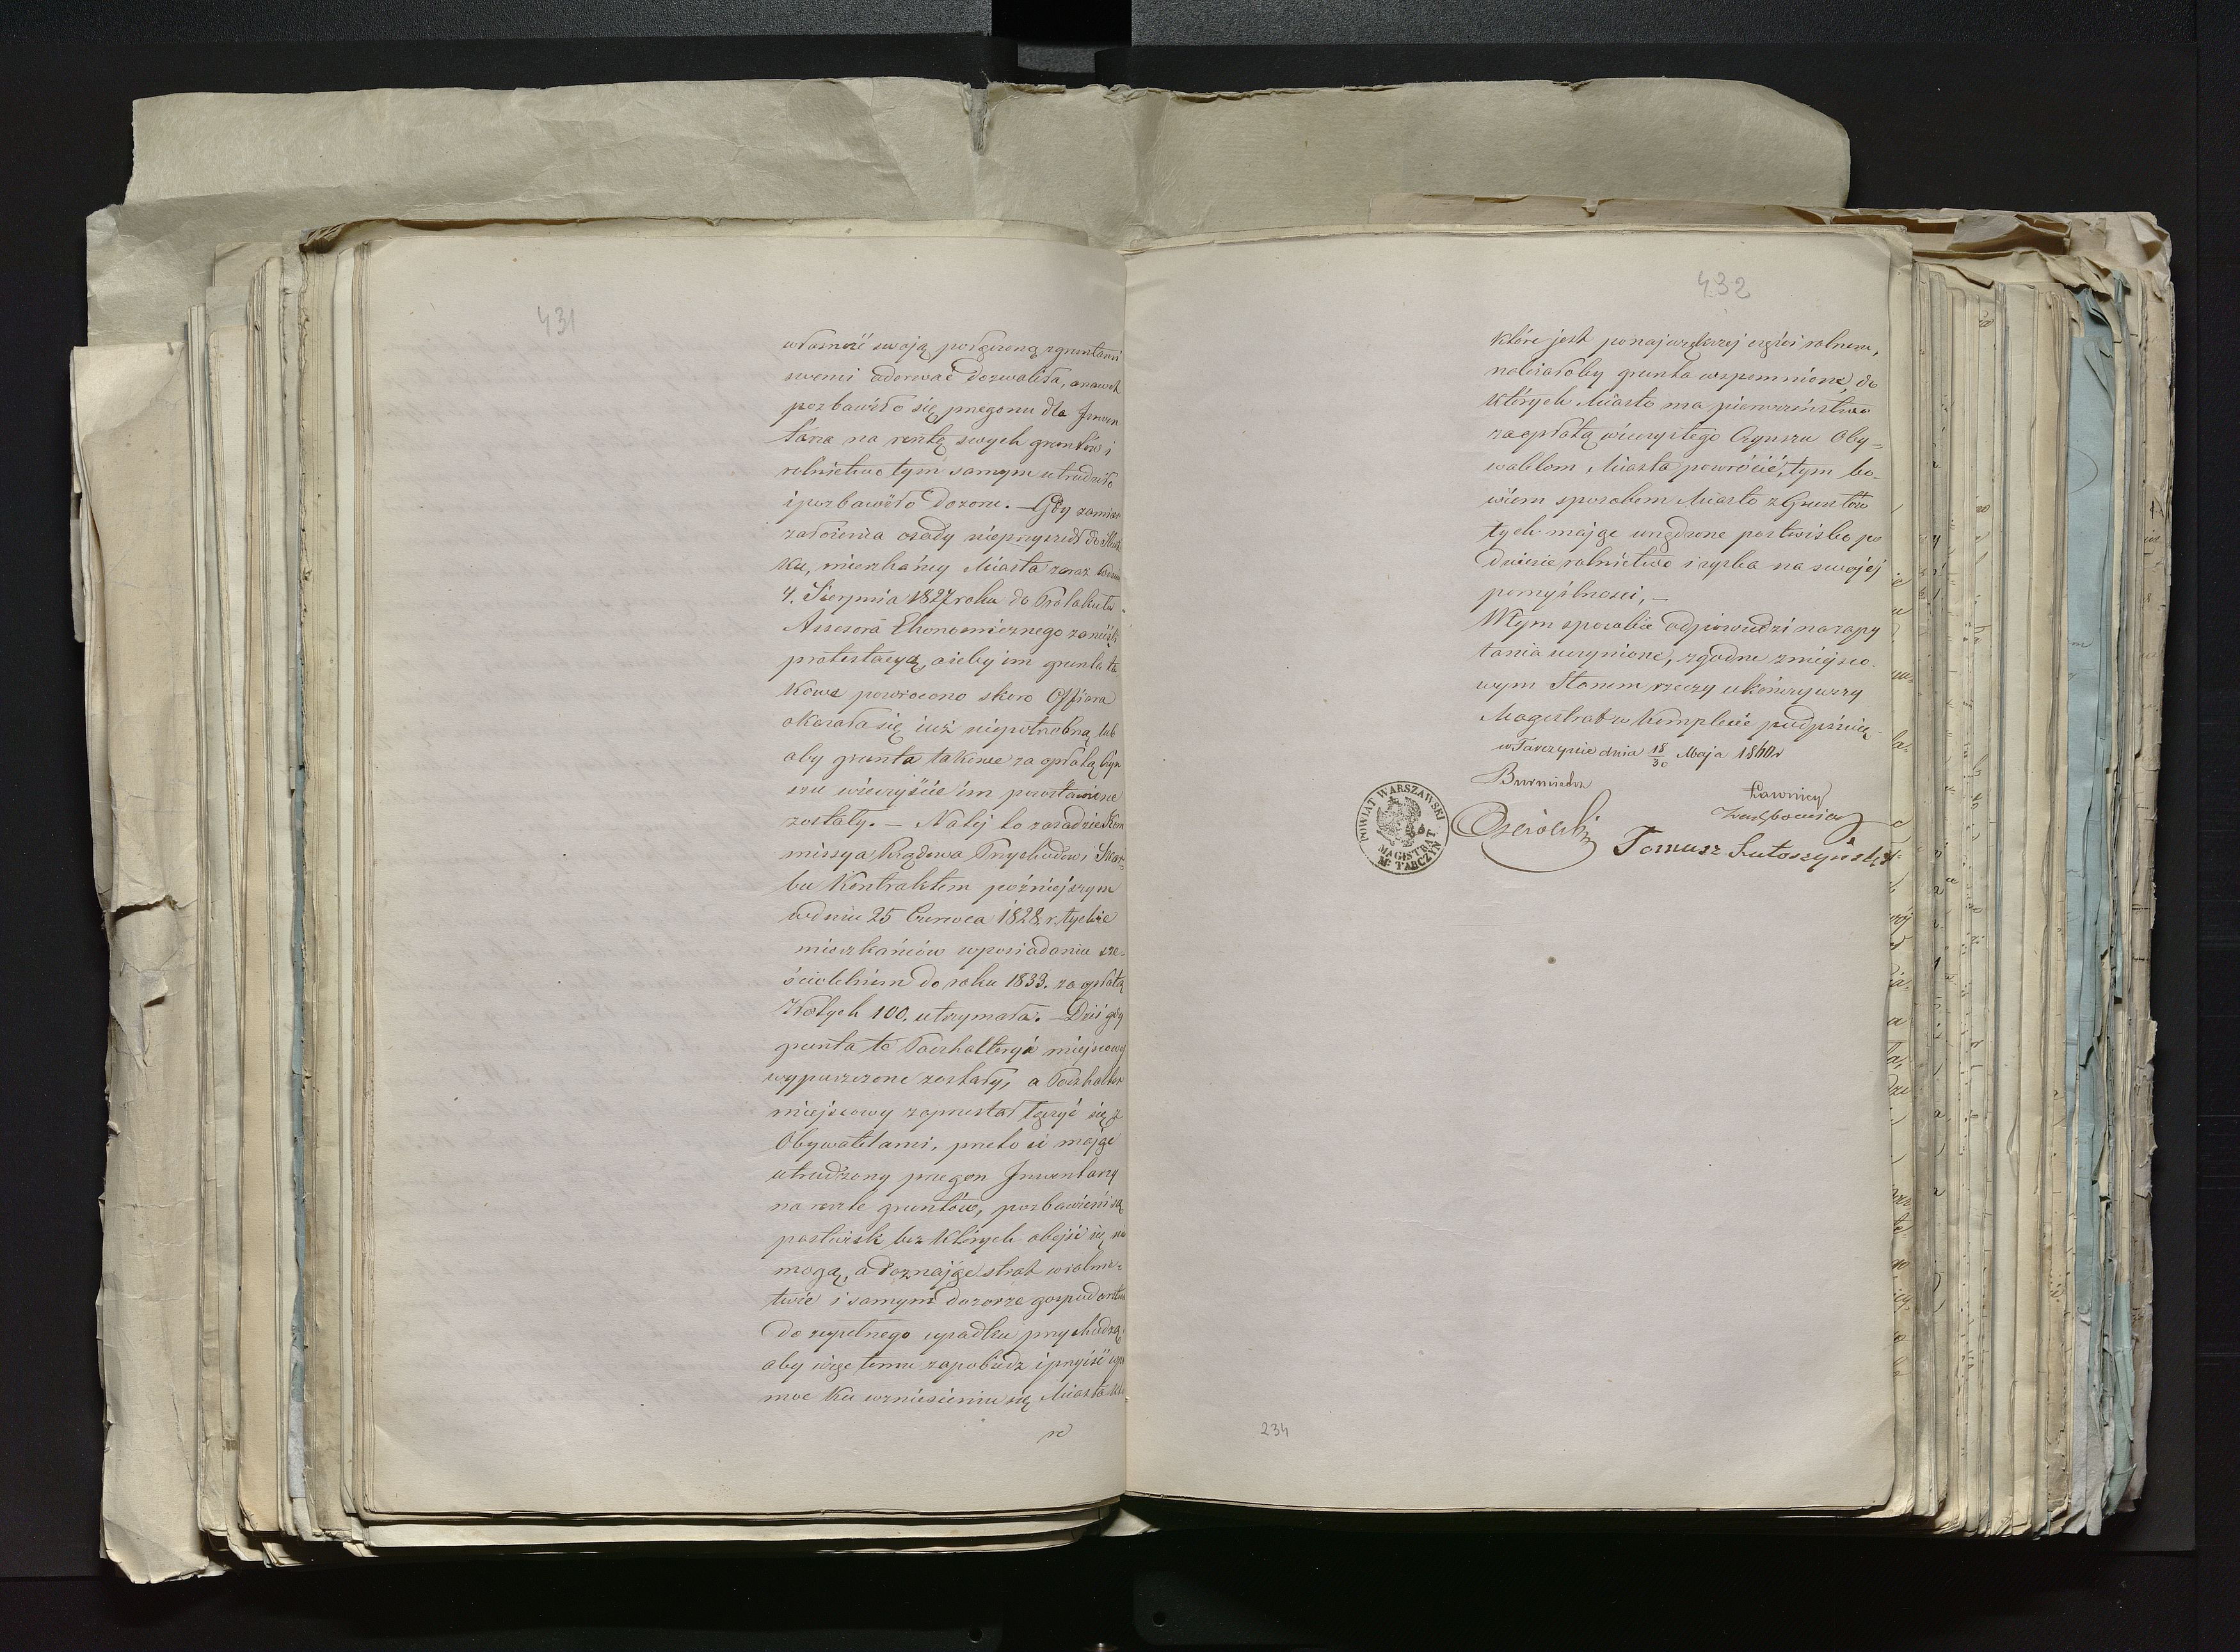 431
własność swoją połączoną z gruntami
swemi oderwać dozwoliła, a nawet
pozbawiło się przegonu dla Inwen
tarza na resztę swych gruntów i
rolnictwo tym samym utrudniło
i pozbawiło dozoru. — Gdy zamiar
założenia osady nieprzyszedł do Skut
ku, mieszkańcy Miasta zaraz w dniu
4. Sierpnia 1827 roku do Protokułu
Assesora Ekonomicznego zanieśli
protestacyą, ażeby im grunta ta
kowe powrocono skoro Offiara
okazała się iuż niepotrzebną lub
aby grunta takowe za opłatą Czyn
szu wieczyście im pozostawione
zostały. — Na tej to zasadzie Kom
missya Rządowa Przychodów i Skar
bu Kontraktem poźniejszym
w dniu 25 Czerwca 1828 r. tychże
mieszkańców w posiadaniu sze-
ścioletnim do roku 1833. za opłatą
Złotych 100. utrzymała. — Dziś gdy
grunta te Poczhalteryi miejscowej
wypuszczone zostały, a Poczhalter
miejscowy zaprzestał łączyć się z
Obywatelami, przeto ci mając
utrudzony przegon Inwentarzy
na resztę gruntów, pozbawieni są
pastwisk bez których obejść się nie
mogą, a doznając strat w rolnic-
twie i samym dozorze gospodarstwa
do zupełnego upadku przychodzą,
aby więc temu zapobiedz i przyjść w po
moc ku wzniesieniu się Miasta któ-
re
432
które jest po najwiękrzej części rolnem,
należałoby grunta wspomnione, do
których Miasto ma pierwszeństwo
za opłatą wieczystego Czynszu Oby=
watelom Miasta powrócić, tym bo-
wiem sposobem Miasto z Gruntów
tych mając urządzone pastwisko po
dniesie rolnictwo i zyska na swojej
pomyślności, —
W tym sposobie odpowiedzi na zapy
tania uczynione, zgodne z miejsco
wym Stanem rzeczy ukończywszy
Magistrat w Komplecie podpisuie
w Tarczynie dnia 18/30 Maja 1860 r
Burmistrz
Ławnicy
Tomasz Lutoszyński
POWIAT WARSZAWSKI
MAGISTRAT
M. TARCZYN
234